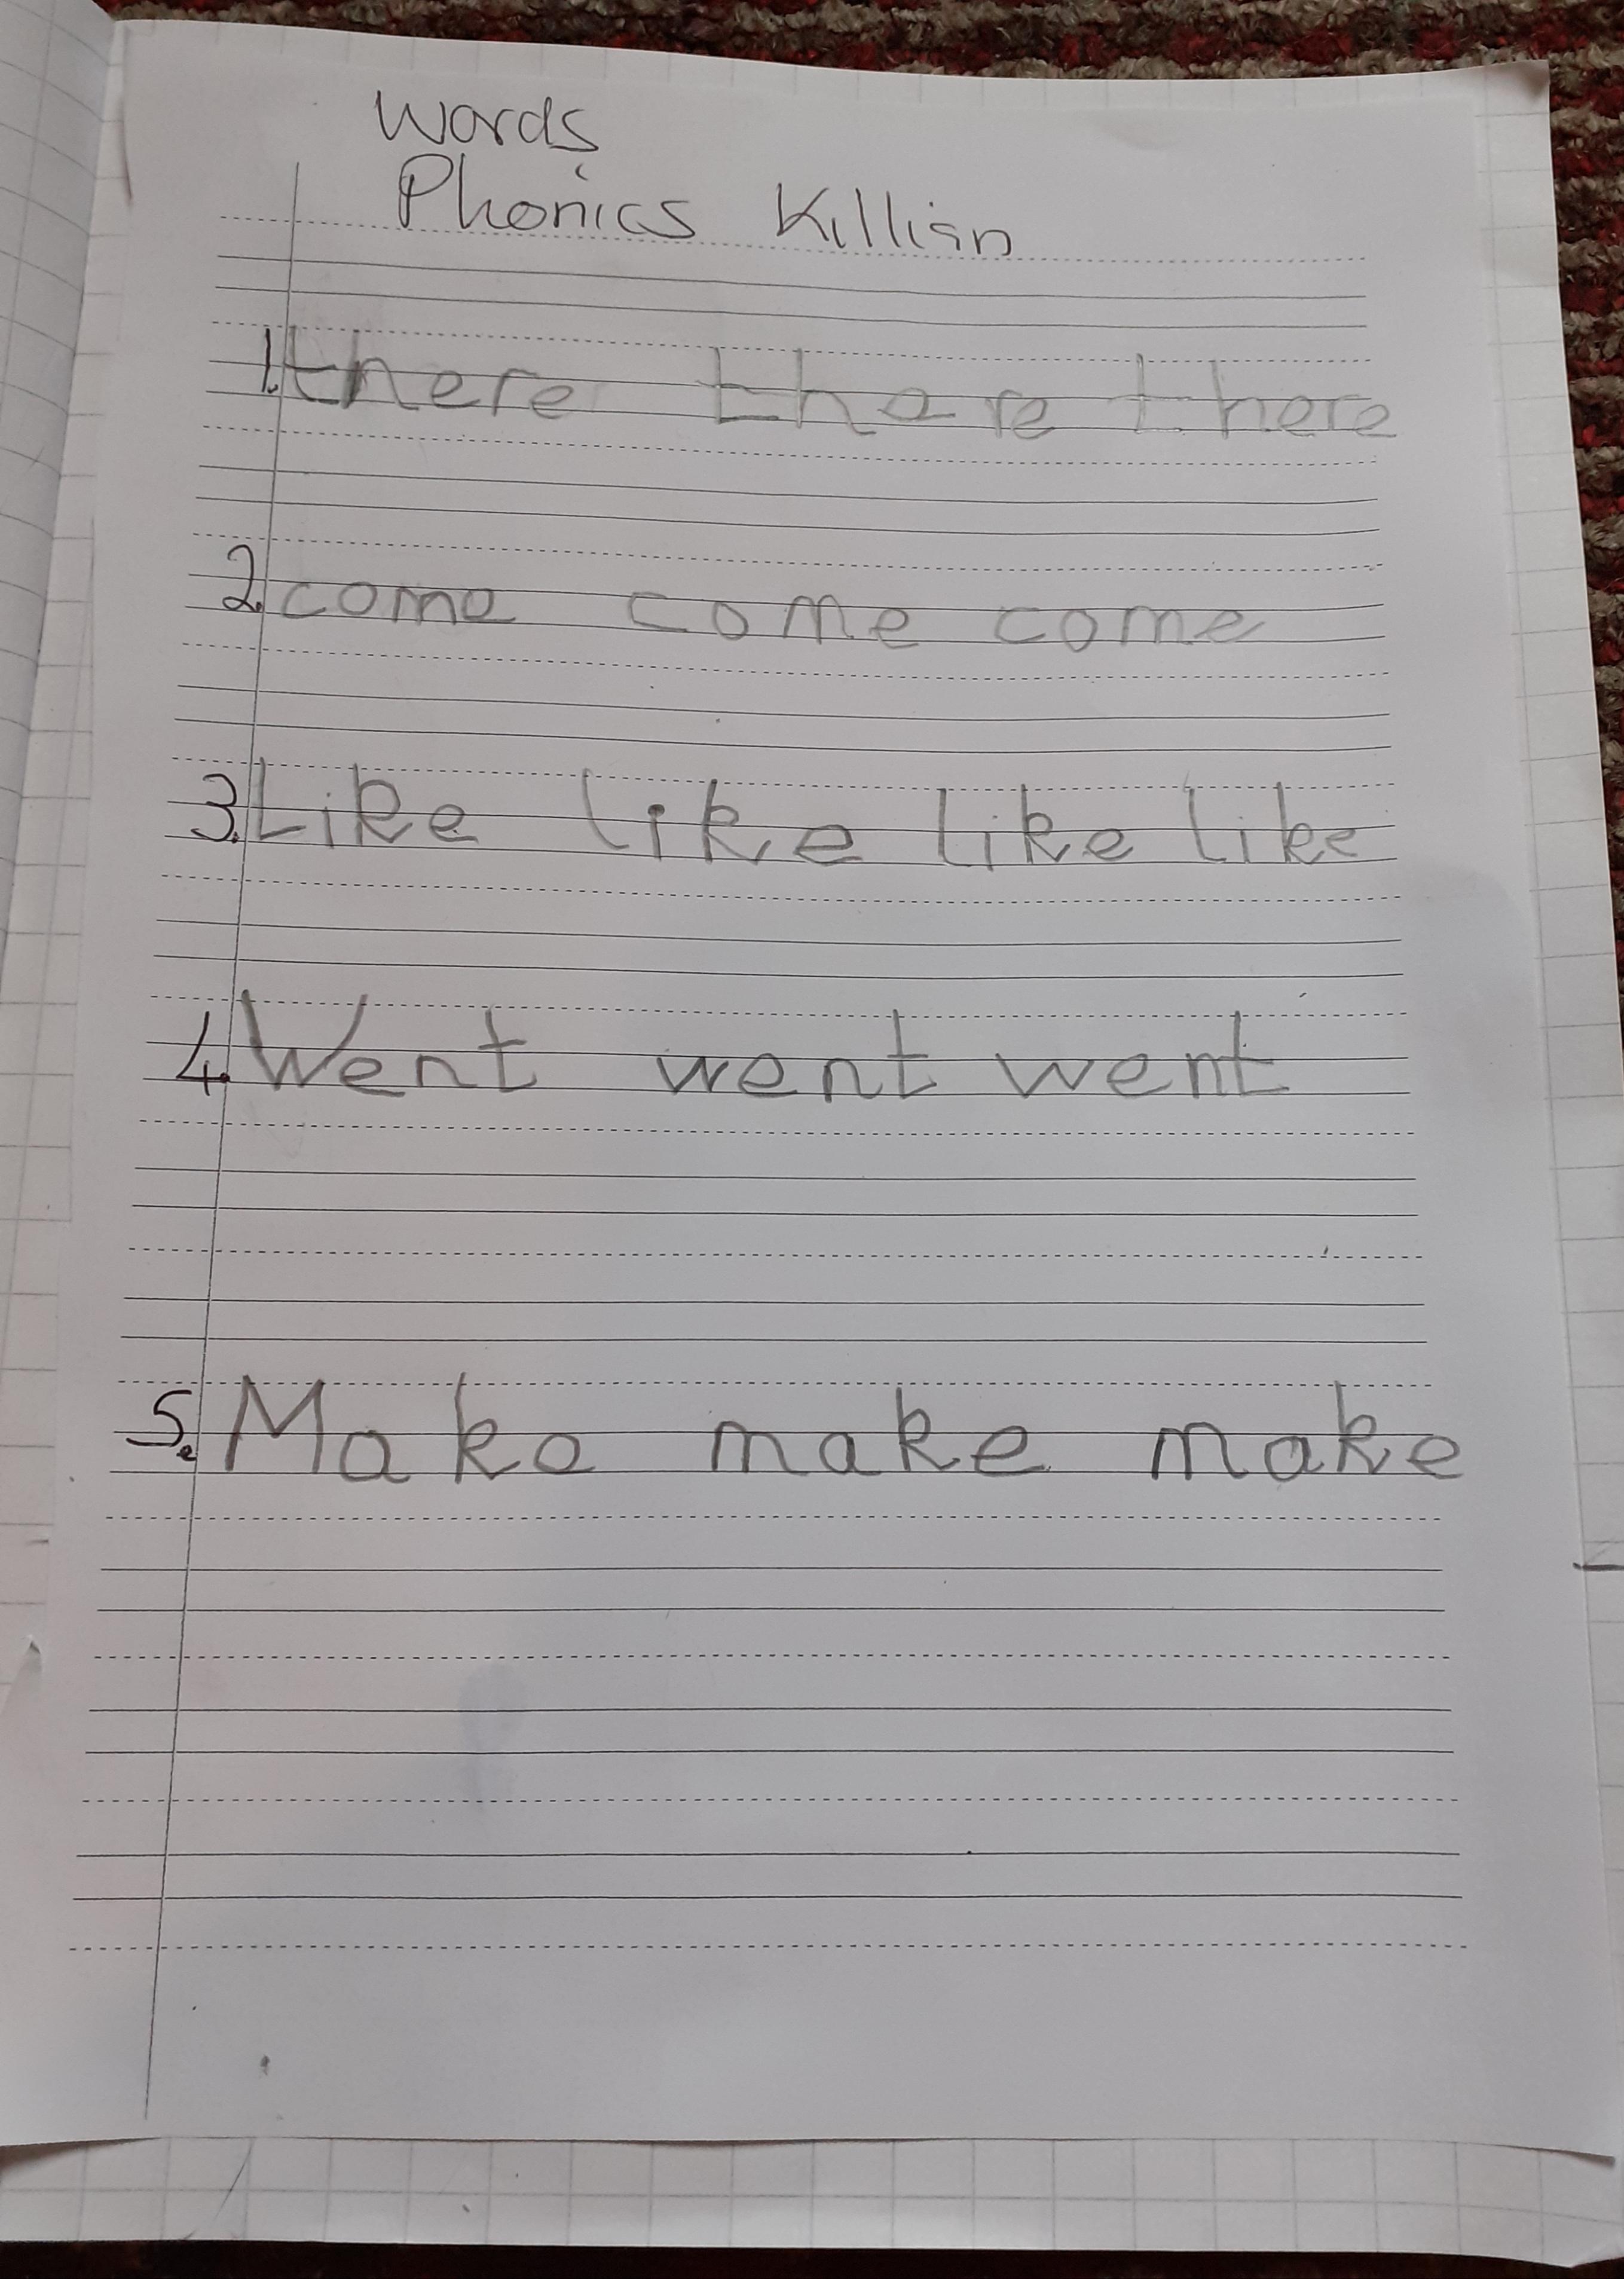 Words
Phonics Killian
1. there there there
2. come come come
3. Like like like like
4. Went went went
5. Make make make